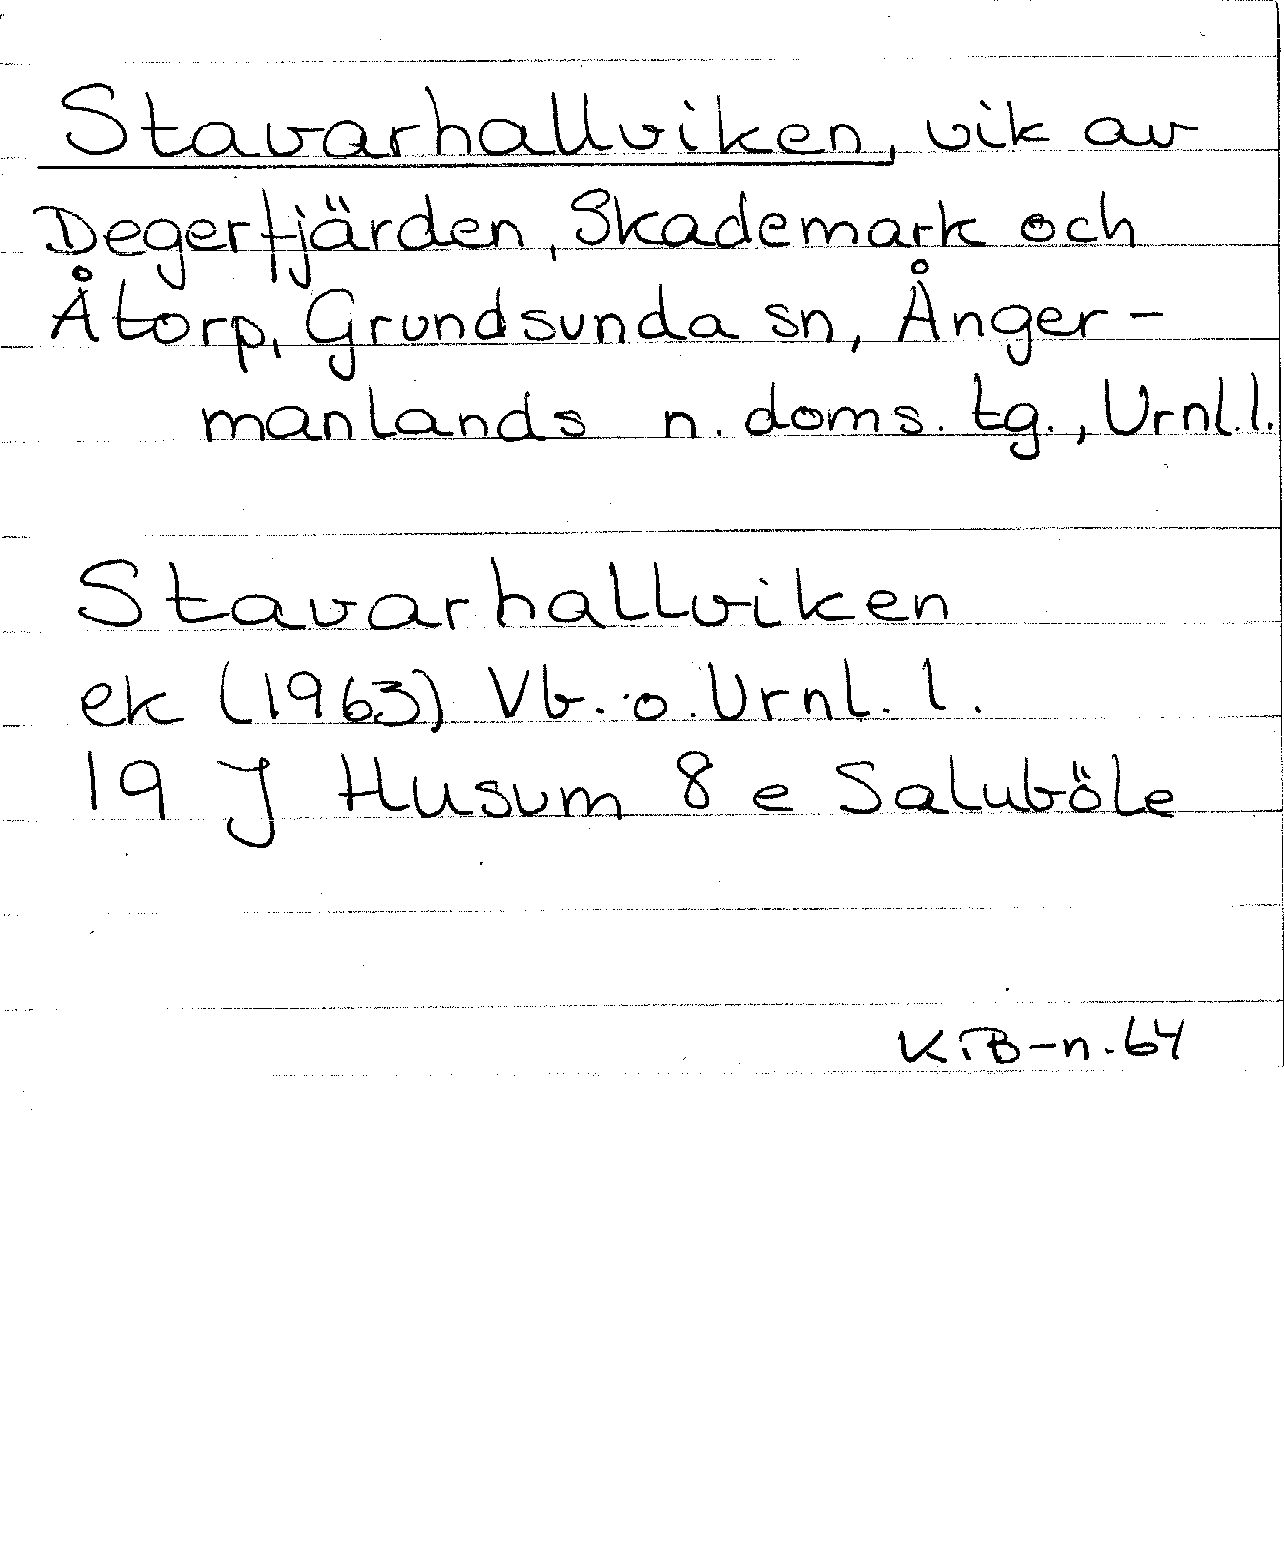 Stavarhallviken, vik av
Degerfjärden, Skademark och
Åtorp, Grundsunda sn, Ånger-
manlands n. doms. tg., Urnl.l.
Stavarhallviken
ek (1963) Vb. o. Urnl. l.
19 J Husum 8 e Saluböle
KiB-n.64